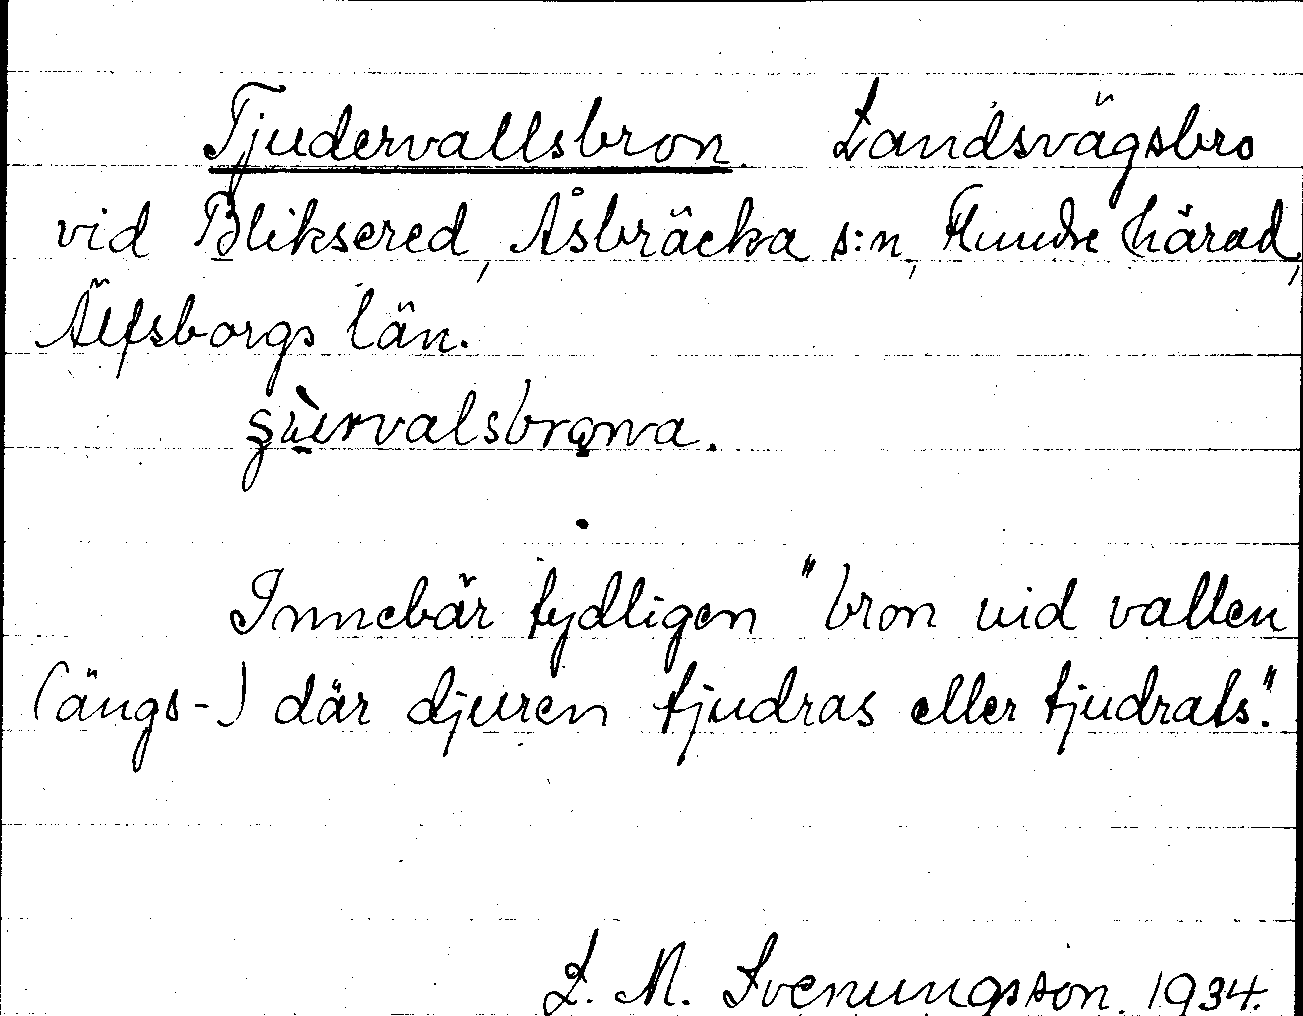 Tjudervallsbron. Landsvägsbro
vid Bliksered, Åsbräcka s:n, Flundre härad,
Älfsborgs län.
Innebär tydligen "bron vid vallen
(ängs-) där djuren tjudras eller tjudrats".
L. M. Svenungsson. 1934.